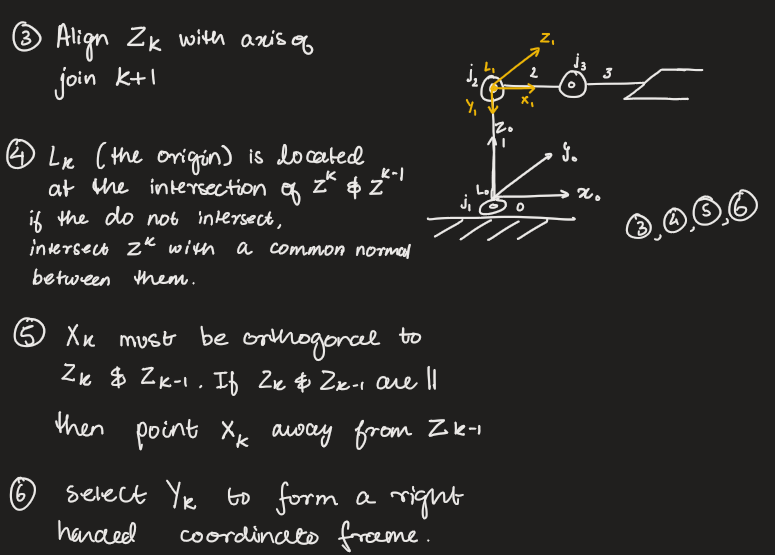 ③ Align Zk with axis of
join k+1
④ Lk (the origin) is located
at the intersection of Z^k & Z^k-1
if the do not intersect,
intersect Z^k with a common normal
between them.
⑤ Xk must be orthogonal to
Zk & Zk-1. If Zk & Zk-1 are ||
then point Xk away from Zk-1
⑥ select Yk to form a right
handed coordinate frame.
Z1
L1
j2
2
j3
3
X1
Y1
Z0
1
y0
L0
x0
j1
0
③,④,⑤,⑥